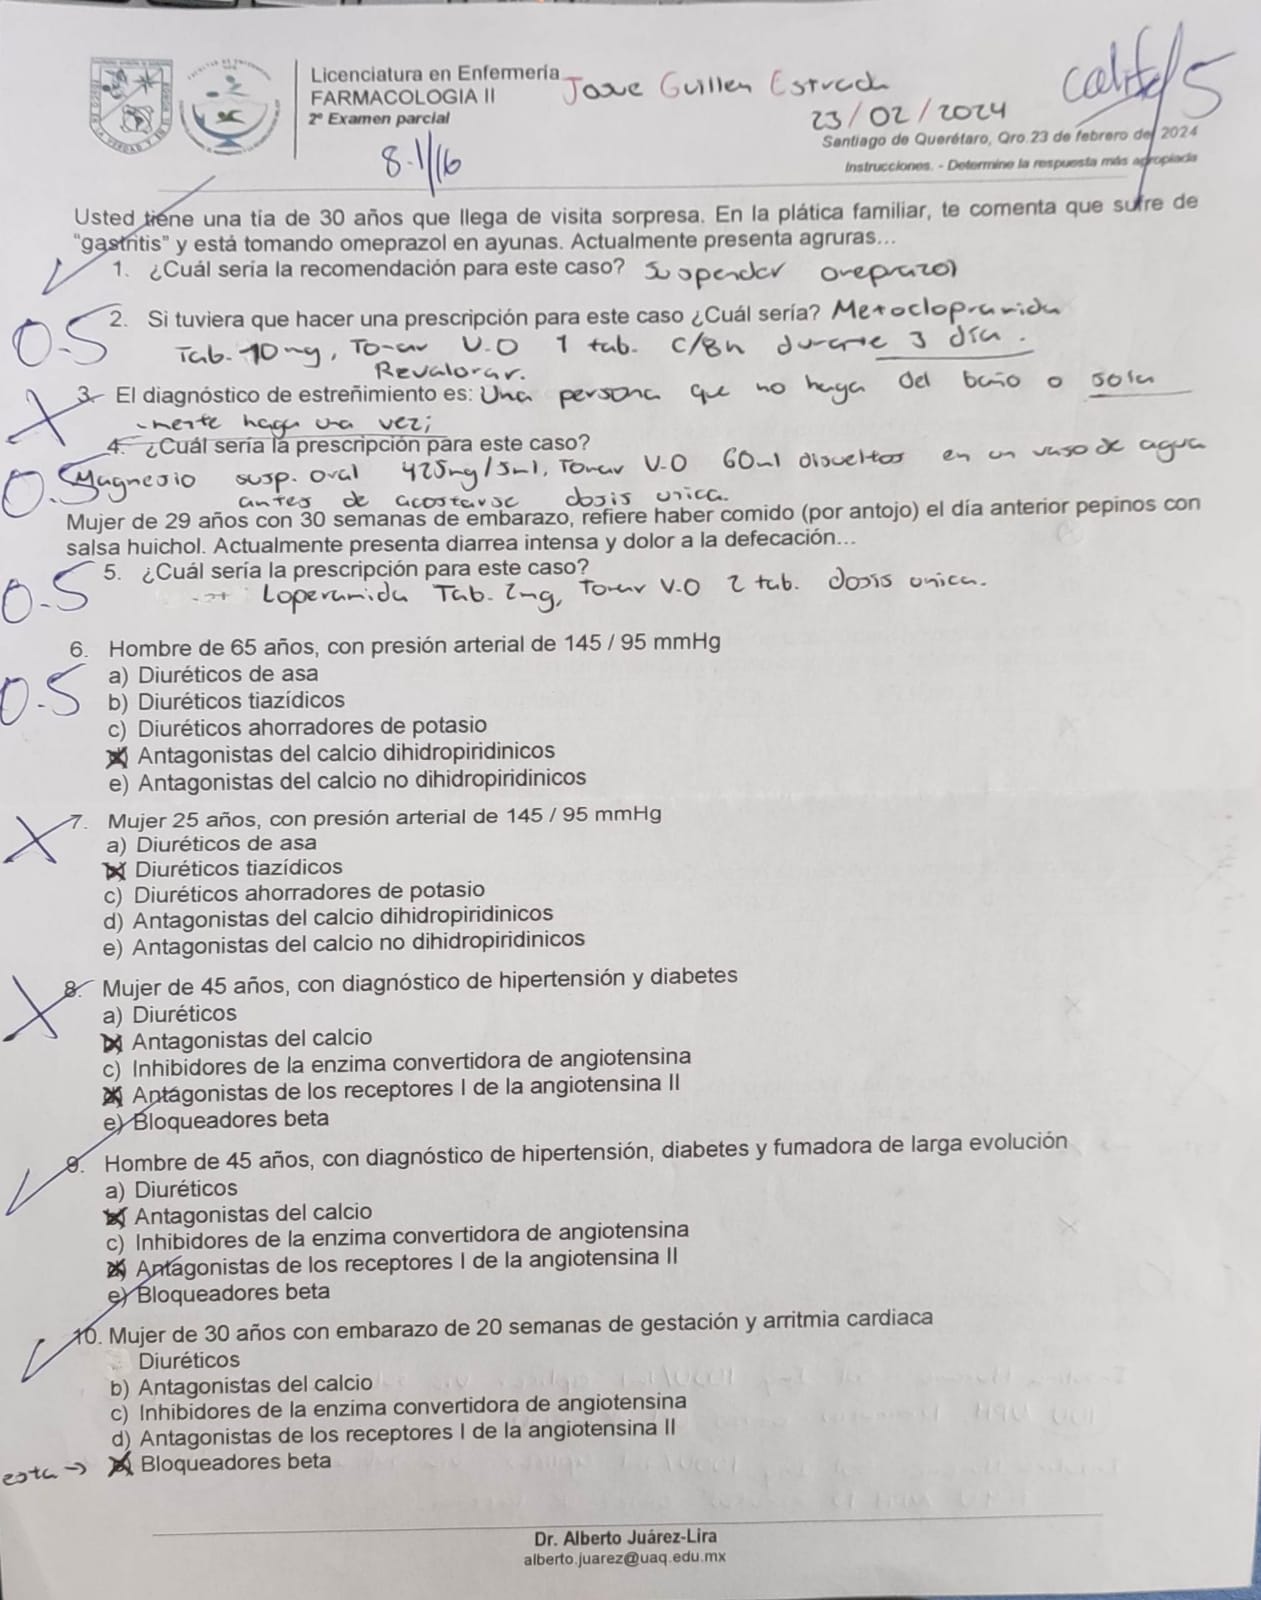 Licenciatura en Enfermería
FARMACOLOGIA II
2º Examen parcial
Josue Guillen Estrada
23/02/2024
5
8.1/16
Santiago de Querétaro, Qro.23 de febrero del 2024
Instrucciones. - Determine la respuesta más apropiada
Usted tiene una tía de 30 años que llega de visita sorpresa. En la plática familiar, te comenta que sufre de
"gastritis" y está tomando omeprazol en ayunas. Actualmente presenta agruras...
1. ¿Cuál sería la recomendación para este caso? Suspender omeprazol
0.5
2. Si tuviera que hacer una prescripción para este caso ¿Cuál sería? Metoclopramida
Tab. 10mg, Tomar V.O 1 tab. c/8h durante 3 día.
Revalorar.
3. El diagnóstico de estreñimiento es: Una persona que no haga del baño o sola
mente haga una vez;
4. ¿Cuál sería la prescripción para este caso?
0.5
Magnesio susp. oral 425mg/5ml, Tomar V.O 60ml disueltos en un vaso de agua
antes de acostarse dosis unica.
Mujer de 29 años con 30 semanas de embarazo, refiere haber comido (por antojo) el día anterior pepinos con
salsa huichol. Actualmente presenta diarrea intensa y dolor a la defecación...
5. ¿Cuál sería la prescripción para este caso?
0.5
Loperamida Tab. 2mg, Tomar V.O 2 tab. dosis unica.
6. Hombre de 65 años, con presión arterial de 145 / 95 mmHg
0.5
a) Diuréticos de asa
b) Diuréticos tiazídicos
c) Diuréticos ahorradores de potasio
d) Antagonistas del calcio dihidropiridinicos
e) Antagonistas del calcio no dihidropiridinicos
7. Mujer 25 años, con presión arterial de 145 / 95 mmHg
a) Diuréticos de asa
b) Diuréticos tiazídicos
c) Diuréticos ahorradores de potasio
d) Antagonistas del calcio dihidropiridinicos
e) Antagonistas del calcio no dihidropiridinicos
8. Mujer de 45 años, con diagnóstico de hipertensión y diabetes
a) Diuréticos
b) Antagonistas del calcio
c) Inhibidores de la enzima convertidora de angiotensina
d) Antagonistas de los receptores I de la angiotensina II
e) Bloqueadores beta
9. Hombre de 45 años, con diagnóstico de hipertensión, diabetes y fumadora de larga evolución
a) Diuréticos
b) Antagonistas del calcio
c) Inhibidores de la enzima convertidora de angiotensina
d) Antagonistas de los receptores I de la angiotensina II
e) Bloqueadores beta
10. Mujer de 30 años con embarazo de 20 semanas de gestación y arritmia cardiaca
Diuréticos
b) Antagonistas del calcio
c) Inhibidores de la enzima convertidora de angiotensina
d) Antagonistas de los receptores I de la angiotensina II
esta → e) Bloqueadores beta
Dr. Alberto Juárez-Lira
alberto.juarez@uaq.edu.mx